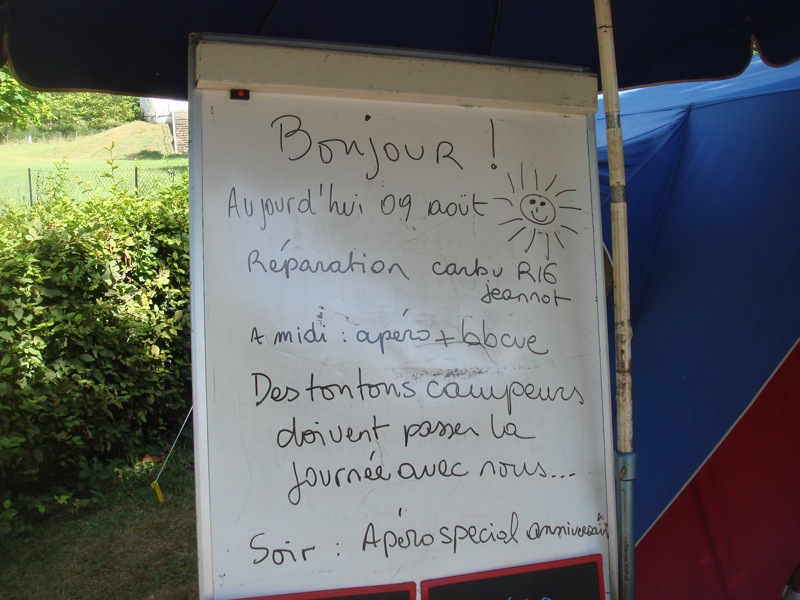 Bonjour !
Aujourd'hui 09 août
Réparation carbu R16
jeannot
A midi : apéro + bbcue
Des tontons campeurs
doivent passer la
journée avec nous...
Soir : Apéro special anniversaire